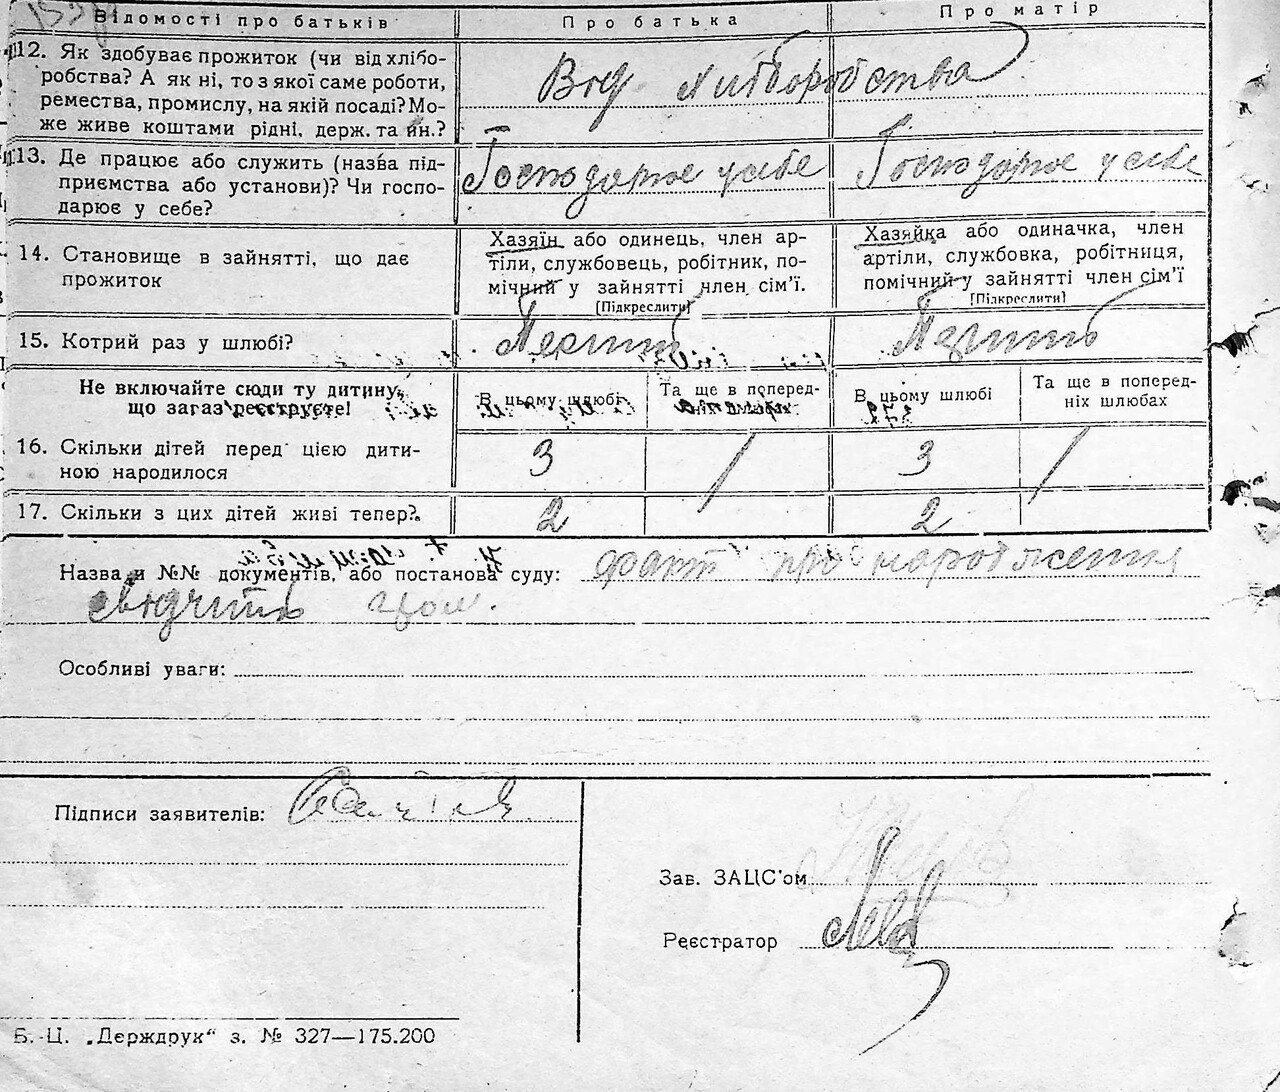 Відомості про батьків Про батька Про матір
12. Як здобуває прожиток (чи від хлібо-
робства? А як ні, то з якої саме роботи,
ремества, промислу, на якій посаді? Мо-
же живе коштами рідні, держ. та ин.?
Від хліборобства
13. Де працює або служить (назва під-
приємства або установи)? Чи госпо-
дарює у себе?
Господарює у себе Господарює у себе
14. Становище в зайнятті, що дає
прожиток
Хазяїн або одинець, член ар-
тіли, службовець, робітник, по-
мічний у зайнятті член сім'ї.
[Підкреслити]
Хазяйка або одиначка, член
артіли, службовка, робітниця,
помічний у зайнятті член сім'ї
[Підкреслити]
15. Котрий раз у шлюбі?
Не включайте сюди ту дитину,
що зараз реєструєте!
В цьому шлюбі Та ще в поперед- В цьому шлюбі Та ще в поперед-
ніх шлюбах
16. Скільки дітей перед цією дити-
ною народилося
3 / 3 /
17. Скільки з цих дітей живі тепер?
2 2
Назва и №№ документів, або постанова суду: факт про народження
свідчить
Особливі уваги:
Підписи заявителів:
Зав. ЗАЦС'ом
Реєстратор
Б.-Ц. „Держдрук" з. № 327—175.200